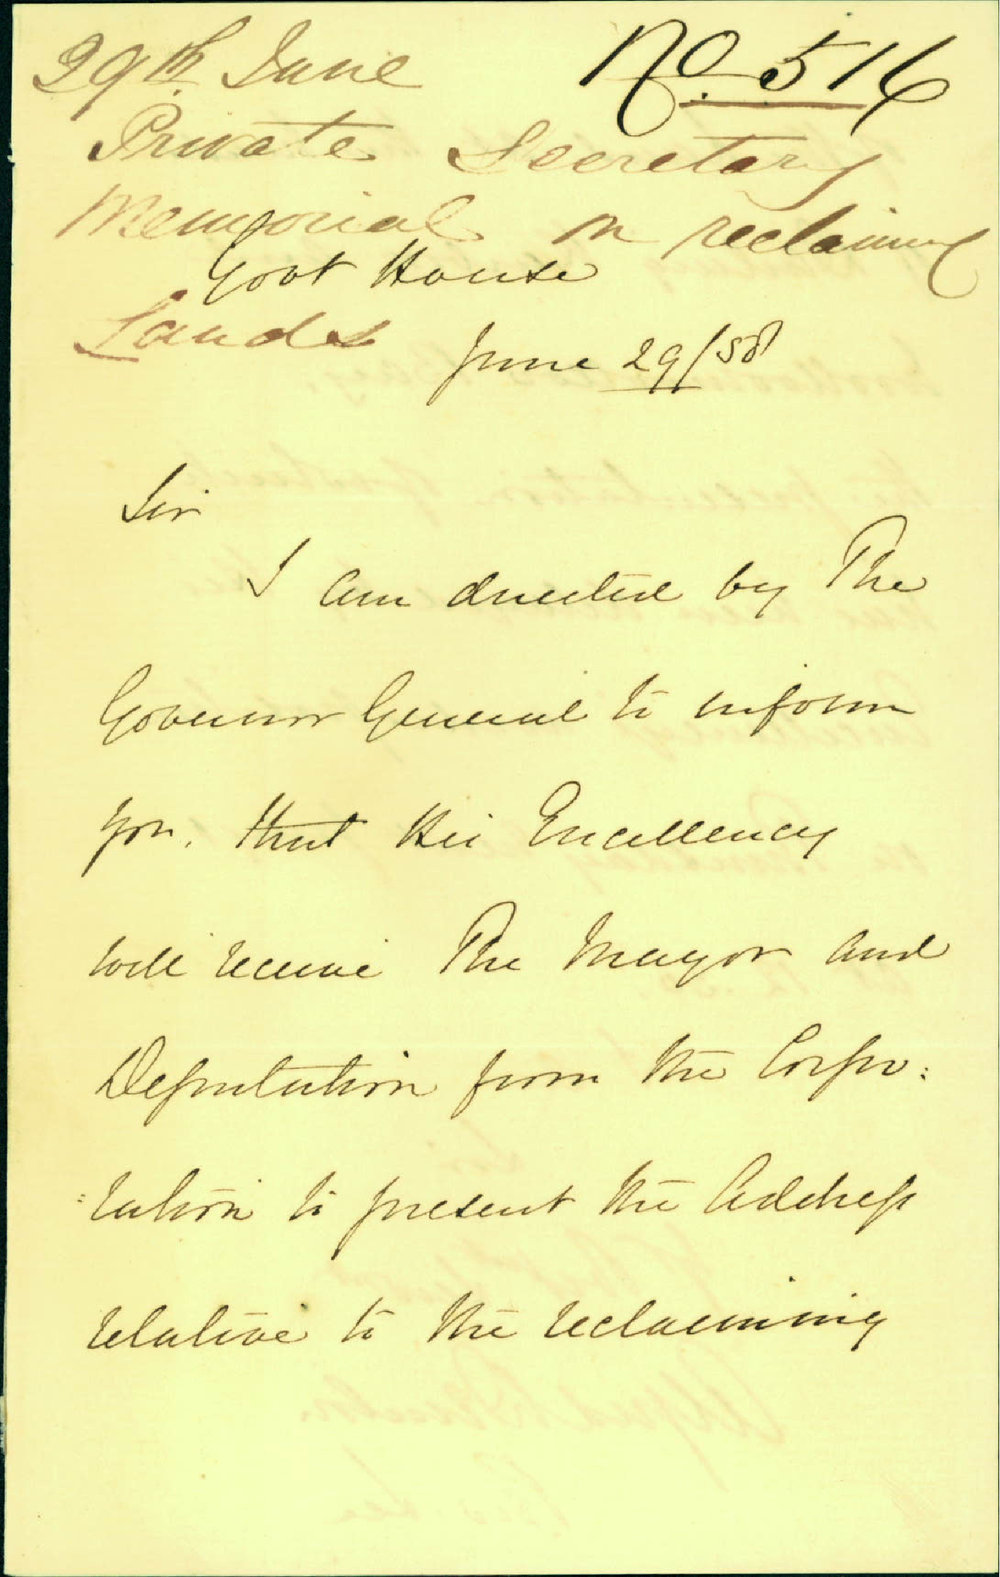 29th. June No. 516
Private Secretary
Memorial on reclaiming
Govt House
Lands
June 29/58
Sir
I am directed by The
Governor General to inform
you, that His Excellency
will receive The Mayor and
Deputation from the Corpo:
:ration to present the Address
relative to the reclaiming